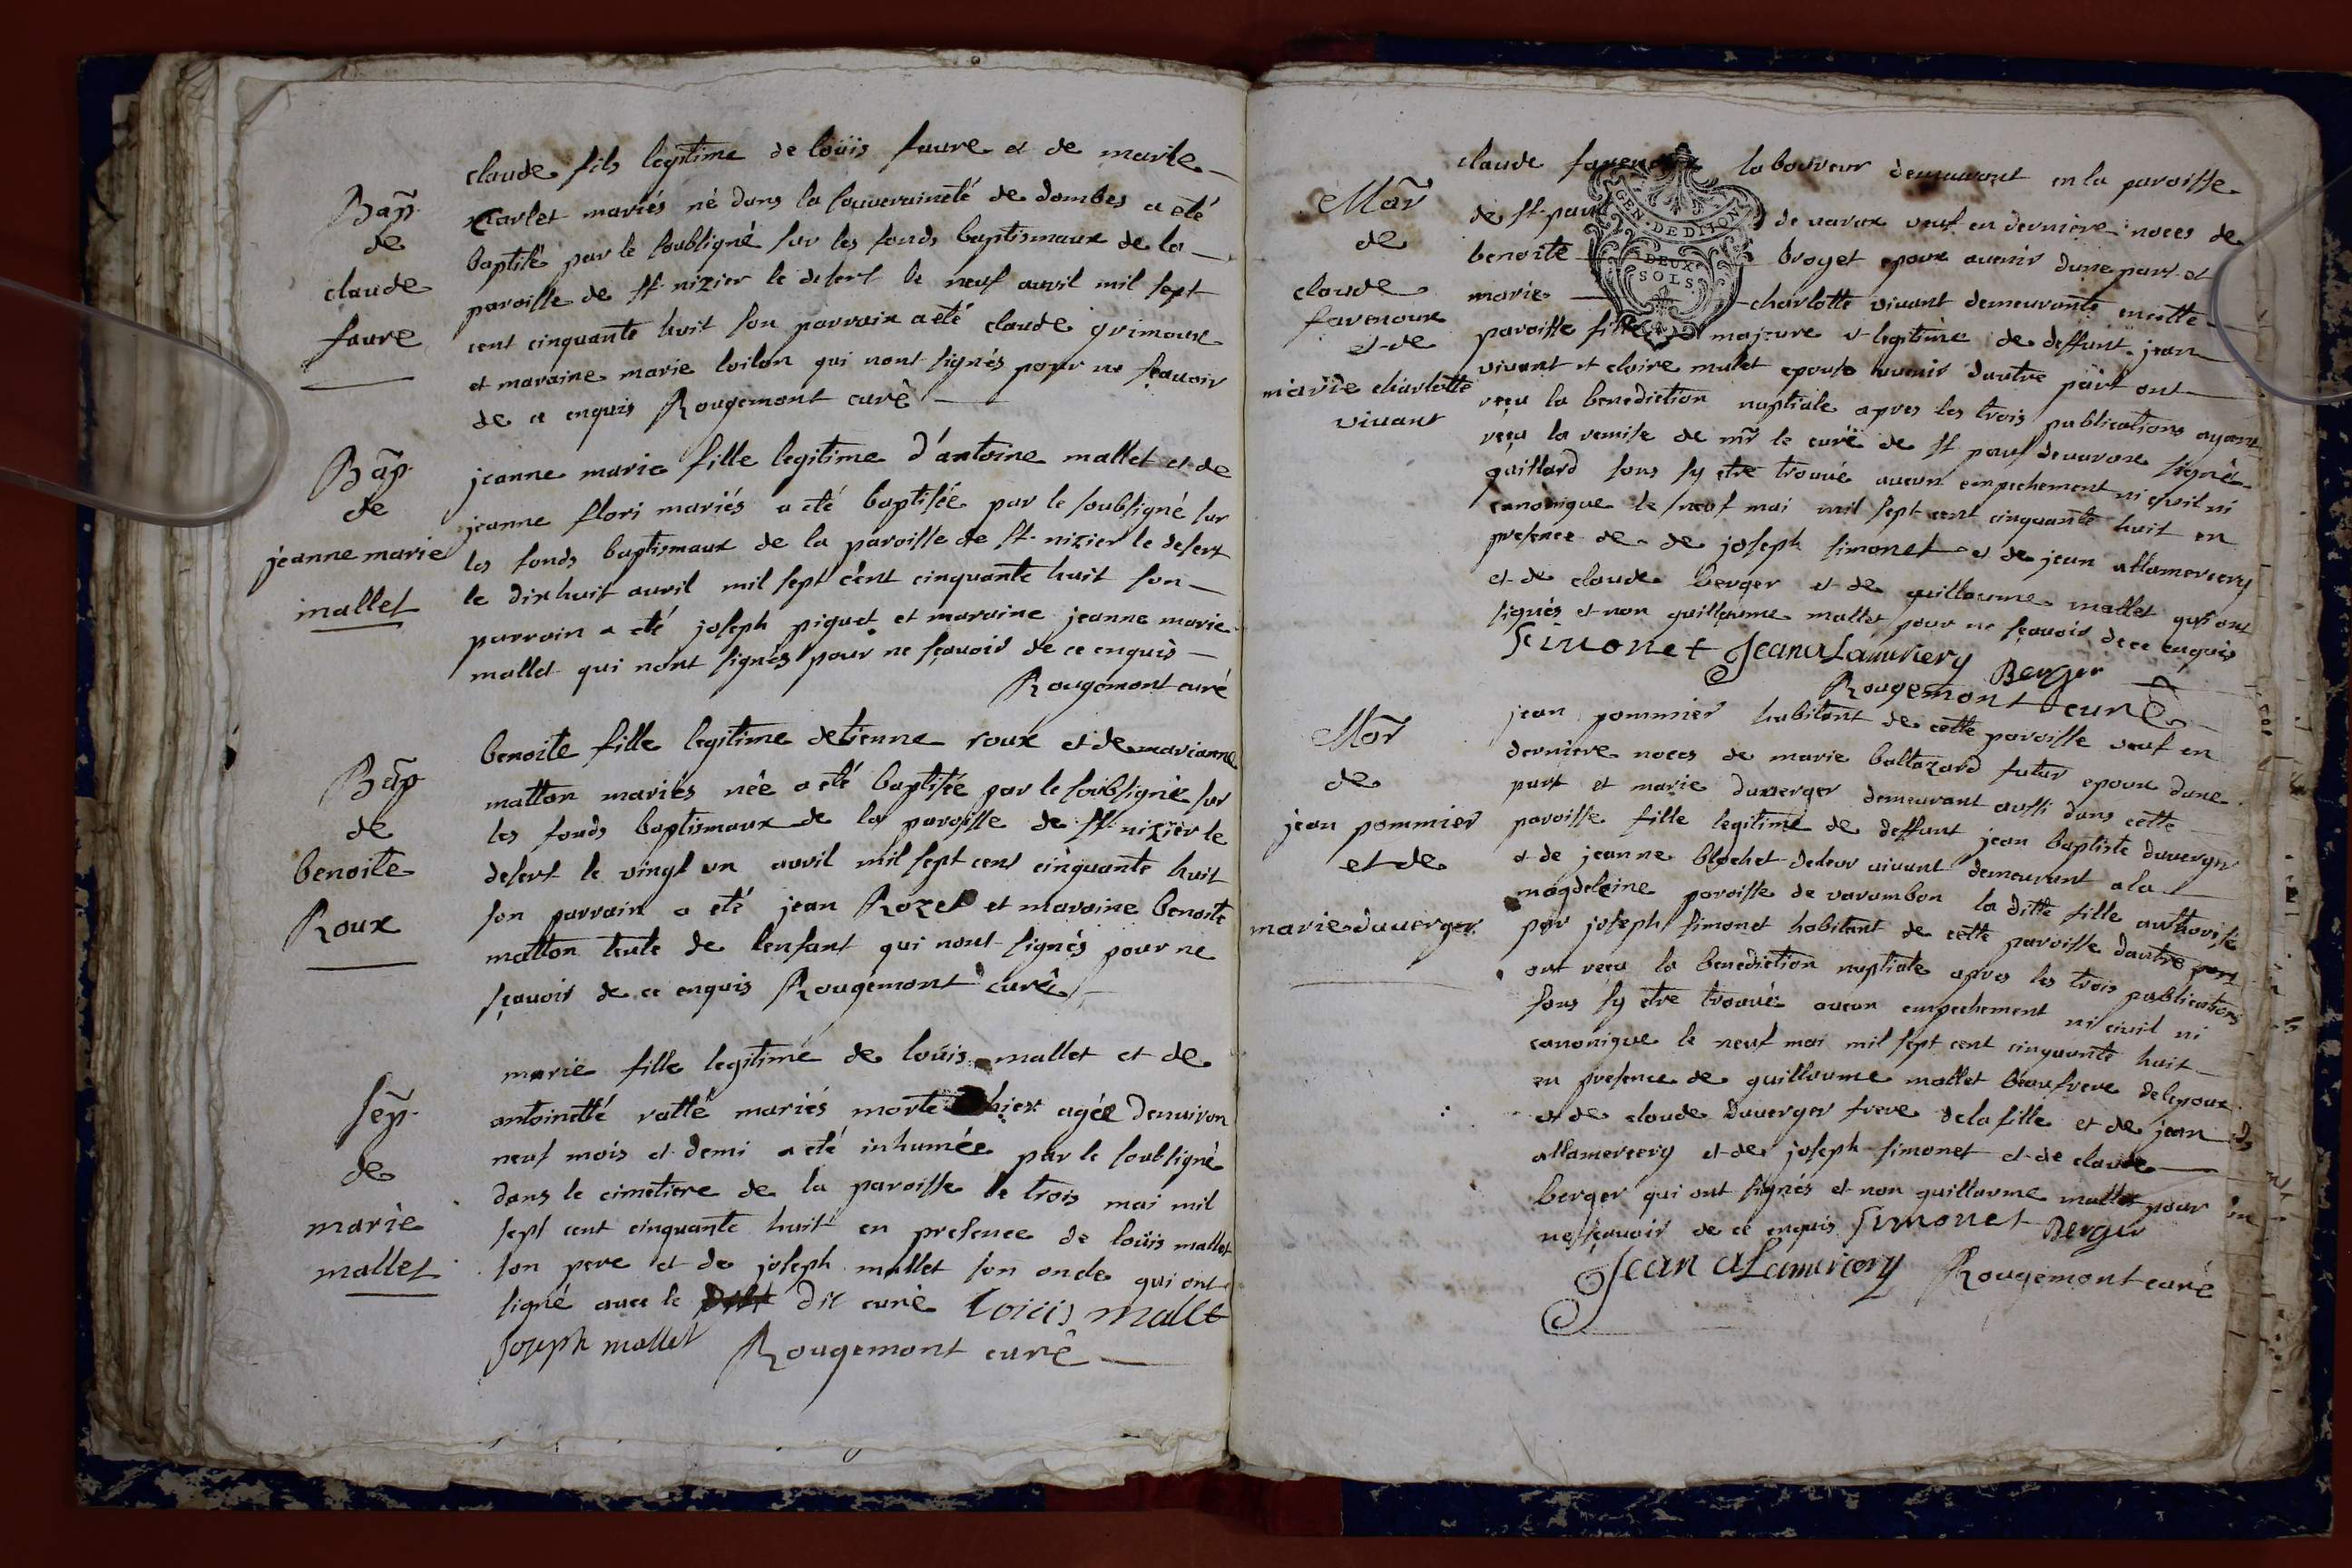 Bap̃
de
claude
faure
claude fils legitime de loüis faure et de marie
carlet mariés né dans la souveraineté de dombes a eté
baptisé par le soubsigné sur les fonds baptismaux de la
paroisse de st nizier le desert le neuf avril mil sept
cent cinquante huit son parrain a eté claude grimoux
et maraine marie loilon qui nont signés pour ne sçavoir
de ce enquis Rougemont curé
Bap̃
de
jeanne marie
mallet
jeanne marie fille legitime d'antoine mallet et de
jeanne flori mariés a eté baptisée par le soubsigné sur
les fonds baptismaux de la paroisse de st nizier le desert
le dixhuit avril mil sept cent cinquante huit son
parrain a eté joseph piquet et maraine jeanne marie
mallet qui nont signés pour ne sçavoir de ce enquis
Rougemont curé
Bap̃
de
benoite
Roux
benoite fille legitime detienne roux et de marianne
matton mariés née a eté baptisée par le soubsigné sur
les fonds baptismaux de la paroisse de st nizier le
desert le vingt un avril mil sept cent cinquante huit
son parrain a eté jean Rozet et maraine benoite
matton tente de lenfant qui nont signés pour ne
sçavoir de ce enquis Rougemont curé
sep̃
de
marie
mallet
marie fille legitime de loüis mallet et de
antoinette ratté mariés morte hier agée denviron
neuf mois et demi a eté inhumée par le soubsigné
dans le cimetiere de la paroisse le trois mai mil
sept cent cinquante huit en presence de loüis mallet
son pere et de joseph mallet son oncle qui ont
signé avec le dit curé Loüis mallet
Joseph mallet Rougemont curé
Mar̃
de
claude
favenoux
et de
marie charlotte
vivant
GEN. DE DIJON
DEUX
SOLS
claude favenoux laboureur demeurant en la paroisse
de st paul de varax veuf en derniere noces de
benoite broyet epoux avenir dune part et
marie charlotte vivant demeurante en cette
paroisse fille majeure et legitime de deffunt jean
vivant et claire mulet epouse avenir dautre part ont
reçu la benediction nuptiale apres les trois publications ayant
reçu la remise de mr le curé de st paul de varax signé
guillard sans sy etre trouvé aucun empechement ni civil ni
canonique le neuf mai mil sept cent cinquante huit en
presence de de joseph simonet et de jean allamercery
et de claude berger et de guillaume mallet qui ont
signés et non guillaume mallet pour ne sçavoir de ce enquis
Simonet Jean aLamercery
Berger
Rougemont curé
Mar̃
de
jean pommier
et de
marie duverger
jean pommier habitant de cette paroisse veuf en
derniere noces de marie baltazard futur epoux dune
part et marie duverger demeurant aussi dans cette
paroisse fille legitime de deffunt jean baptiste duverger
et de jeanne blochet de leur vivant demeurant a la
magdeleine paroisse de varambon la ditte fille authorisé
par joseph simonet habitant de cette paroisse dautre part
ont reçu la benediction nuptiale apres les trois publications
sans sy etre trouvé aucun empechement ni civil ni
canonique le neuf mai mil sept cent cinquante huit
en presence de guillaume mallet beaufrere de lepoux
et de claude duverger frere de la fille et de jean
allamercery et de joseph simonet et de claude
berger qui ont signés et non guillaume mallet pour
ne sçavoir de ce enquis Simonet Berger
Jean aLamercery Rougemont curé